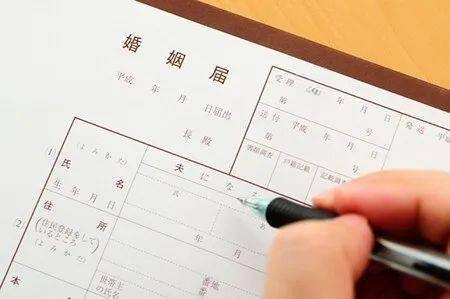 婚姻届
平成 年 月 日届出
長 殿
受理 平成 年 月 日
第 号
送付 平成 年 月 日
第 号
発送 平成
書類調査 戸籍記載 記載調査
(1)
(よみかた)
氏名
生年月日
夫になる
氏
年 月
(2)
住所
(住民登録をして
いるところ)
(よみかた)
番地
番
世帯主
の氏名
本